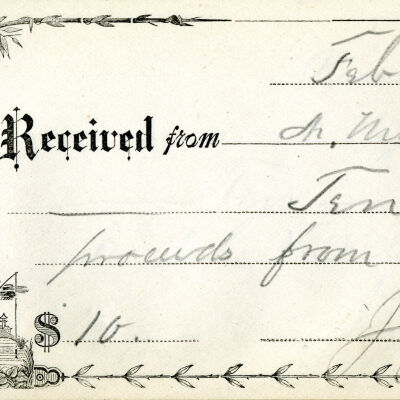 Feb
Received from
Ten
proceeds from
$ 10.